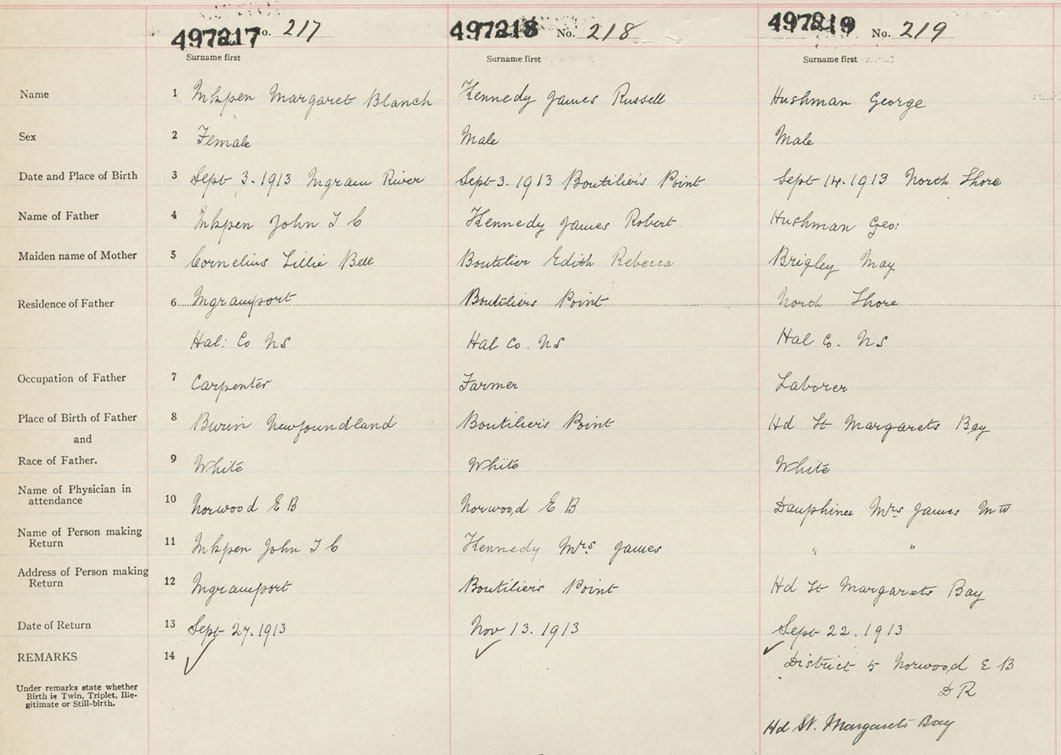 497217 No. 217 497218 No. 218 497219 No. 219
Surname first Surname first Surname first
Name 1 Inkpen Margaret Blanch Kennedy James Russell Hushman George
Sex 2 Female Male Male
Date and Place of Birth 3 Sept 3. 1913 Ingram River Sept 3. 1913 Boutiliers Point Sept 14. 1913 North Shore
Name of Father 4 Inkpen John T C Kennedy James Robert Hushman Geo:
Maiden name of Mother 5 Cornelius Lillie Bell Boutilier Edith Rebecca Brigley May
Residence of Father 6 Ingramport Boutiliers Point North Shore
Hal: Co NS Hal Co. NS Hal Co. NS
Occupation of Father 7 Carpenter Farmer Laborer
Place of Birth of Father 8 Burin Newfoundland Boutiliers Point Hd St Margarets Bay
and
Race of Father. 9 White White White
Name of Physician in
attendance 10 Norwood E B Norwood E B Dauphinee Mrs James
Name of Person making
Return 11 Inkpen John T C Kennedy Mrs James " "
Address of Person making
Return 12 Ingramport Boutiliers Point Hd St Margarets Bay
Date of Return 13 Sept 27. 1913 Nov 13. 1913 Sept 22. 1913
REMARKS 14 ✓ ✓ ✓ District 5 Norwood E B
Under remarks state whether
Birth is Twin, Triplet, Ille-
gitimate or Still-birth.
D R
Hd St. Margarets Bay